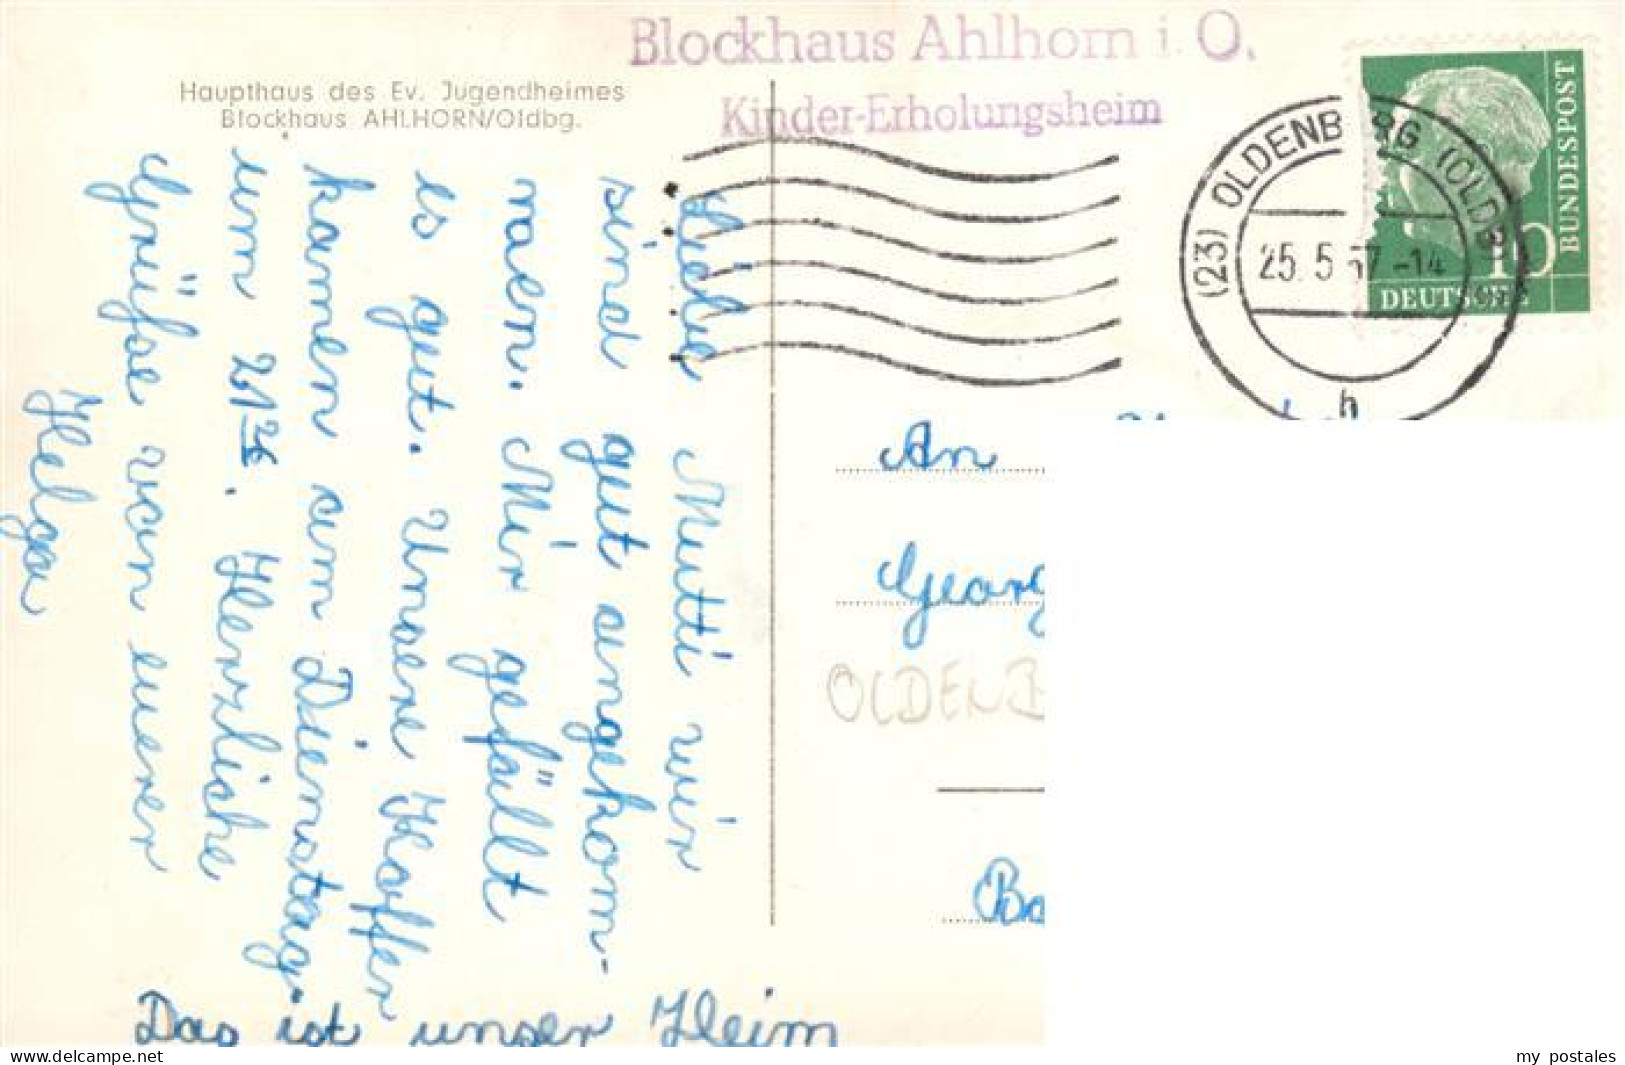 Blockhaus Ahlhorn i. O.
Kinder-Erholungsheim
Haupthaus des Ev. Jugendheimes
Blockhaus AHLHORN/Oldbg.
BUNDESPOST
10
DEUTSCHE
(23) OLDENBURG (OLDB)
25.5.57-14
h
Liebe Mutti wir
sind gut angekom-
men. Mir gefällt
es gut. Unsere Koffer
kamen am Dienstag.
um
Herzliche
Grüße von euerer
Helga
Das ist unser Heim
An
Georg
OLDENB
Ba
www.delcampe.net
my postales